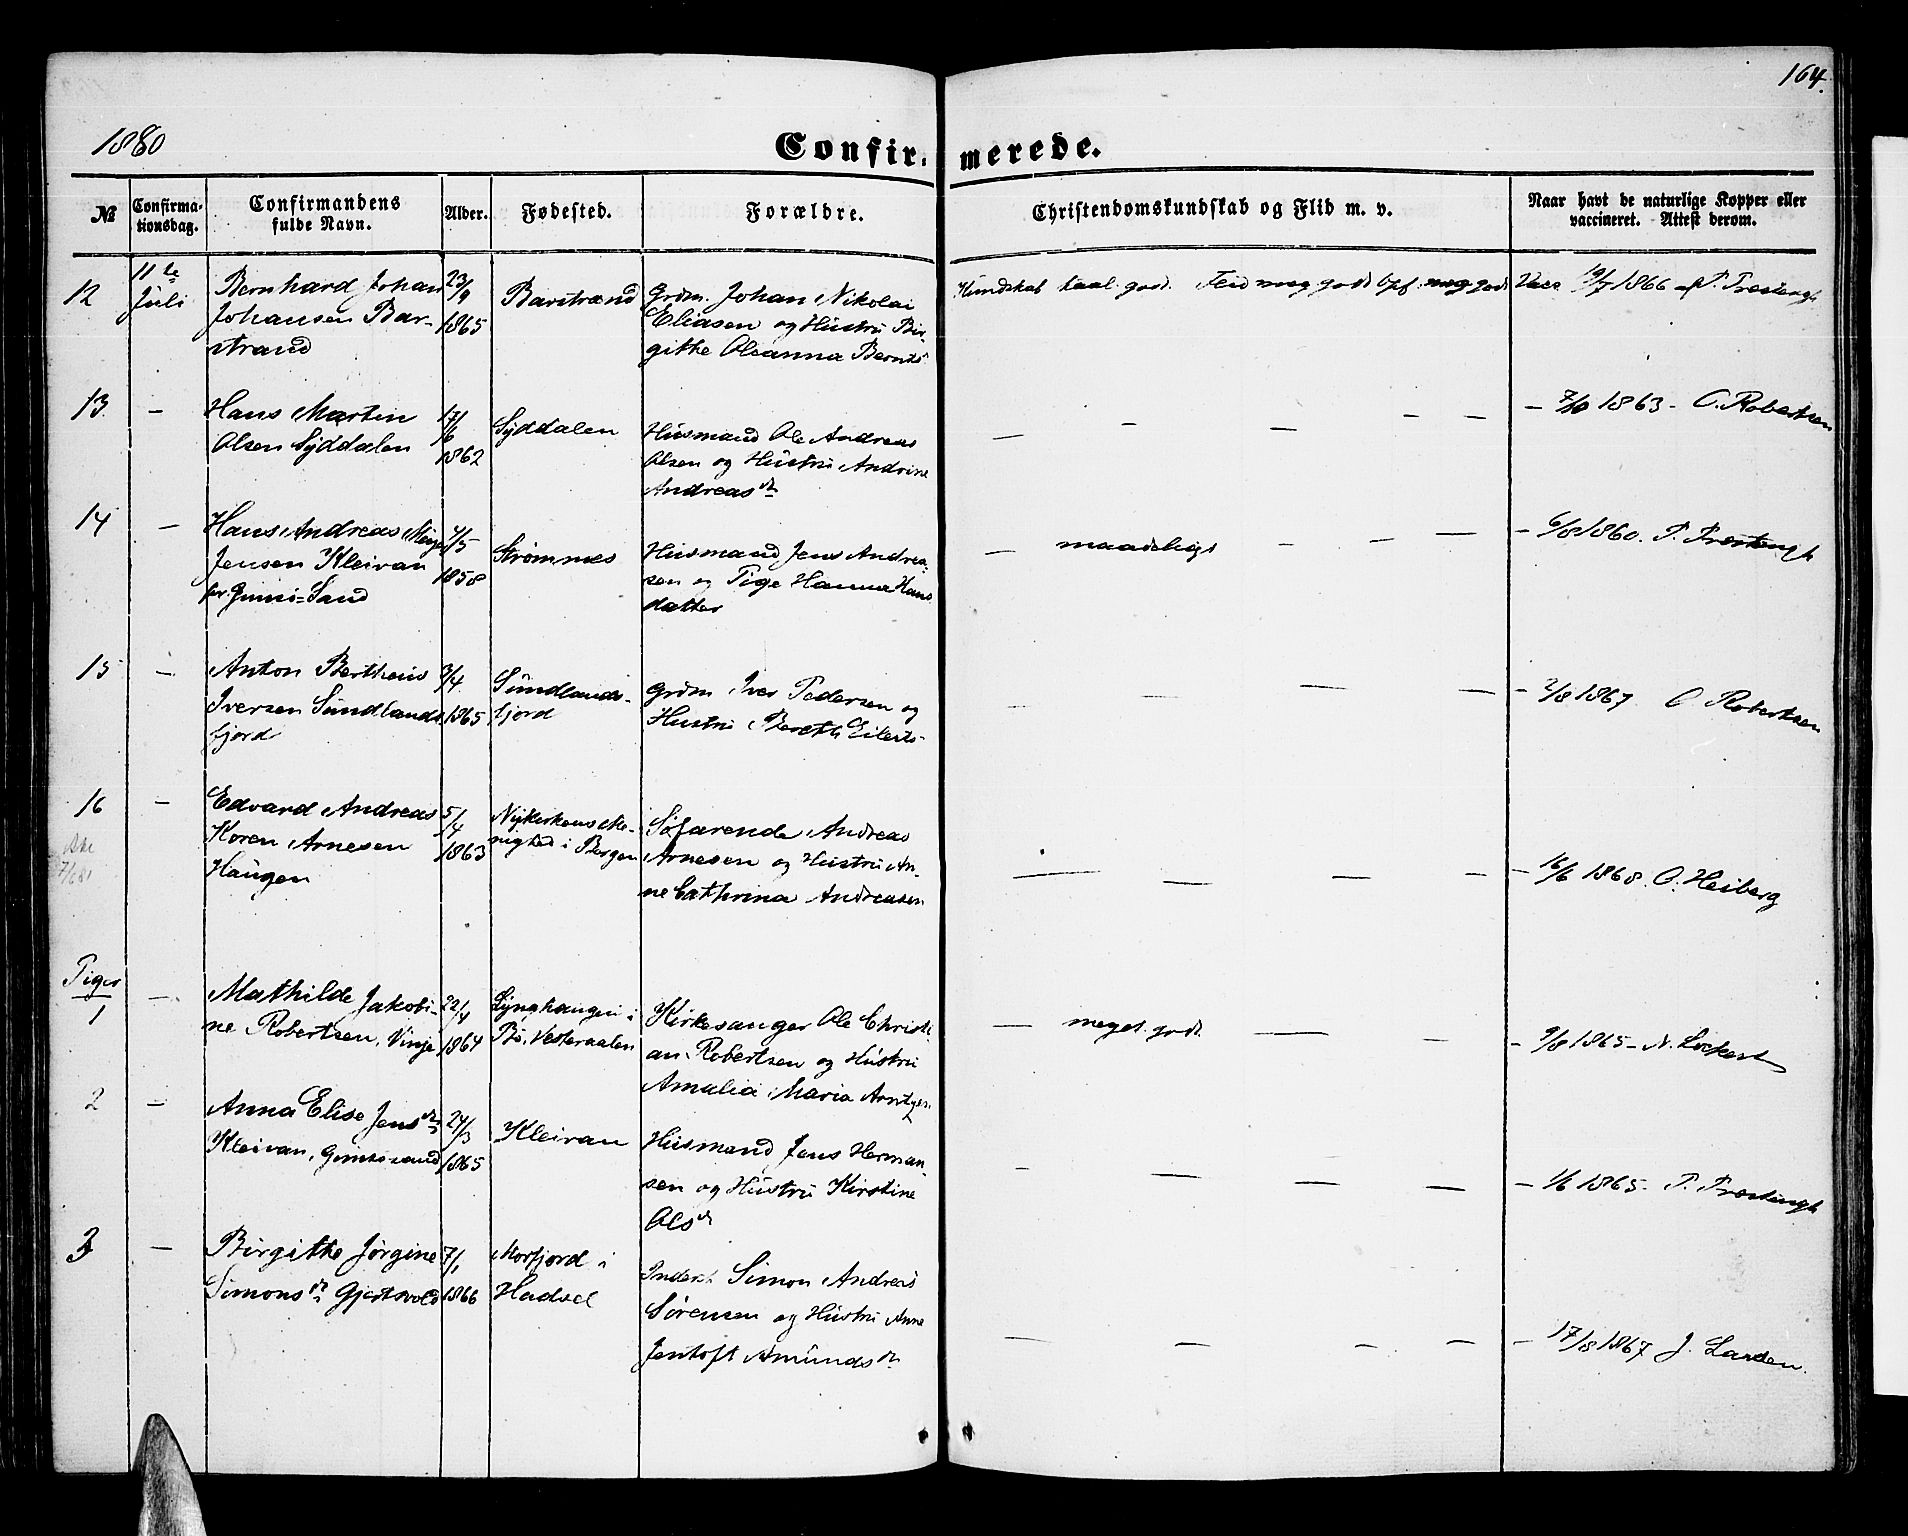 164.
1880
Confirmerede.
№ Confirmationsdag. Confirmandens fulde Navn. Alder. Fødested. Forældre. Christendomskundskab og Flid m. v. Naar havt de naturlige Kopper eller vaccineret. Attest derom.
12 11te Juli
Bernhard Johan
Johansen Bar-
strand
23/9
1865
Barstrand
Grdm. Johan Nikolai
Eliasen og Hustru Bir-
gitte Oleanna Bernts
Kundskab taal. godt. Flid meg godt Opf. meg godt
Vacc 19/7 1866 af
13 —
Hans Martin
Olsen Syddalen
17/6
1862
Syddalen
Husmand Ole Andreas
Olsen og Hustru Andrine
Andreasdr
— — — — —
— 1863 - O. Robertsen
14 —
Hans Andreas
Jensen Kleivan
Gimsø-Sand
/5
1858
Strømnes
Husmand Jens Andrea-
sen og Pige Hanna Hans
datter
— maadeligt — — —
— 6/8 1860. P.
15 —
Anton Bertheus
Iversen Sundlands
fjord
3/4
1865
Sundlands-
fjord
Grdm Iver Pedersen og
Hustru Bereth Eilerts-
— — — —
— 2/8 1867 O Robertsen
16 —
7/6 81
Edvard Andreas
Koren Arnesen
Haugen
5/4
1863
Nykirkens Me-
nighed i Bergen
Søfarende Andreas
Arnesen og Hustru An-
ne Cathrina Andreasen
— — — —
— 16/6 1868. O. Heiberg
Piger
1 —
Mathilde Jakobi-
ne Robertsen, Vinje
22/4
1864
Lynghaugen i
Bø, Vesteraalen
Kirkesanger Ole Christi
an Robertsen og Hustru
Amalia Maria
— meget godt. — —
— 9/8 1865 - N. Lockert
2 —
Anna Elise Jensdr
Kleivan, Gimsøsand
27/3
1865
Kleivan
Husmand Jens Herman-
sen og Hustru Kirstine
Olsdr
— — — —
— 1/6 1865. P.
3 —
Birgitte Jørgine
Simonsdr Gjertsvold
7/1
1866
Morfjord i
Hadsel
Inderst Simon Andreas
Sørensen og Hustru Anne
Jentoft Amundsdr
— — — —
— 17/8 1867 J. Larsen.